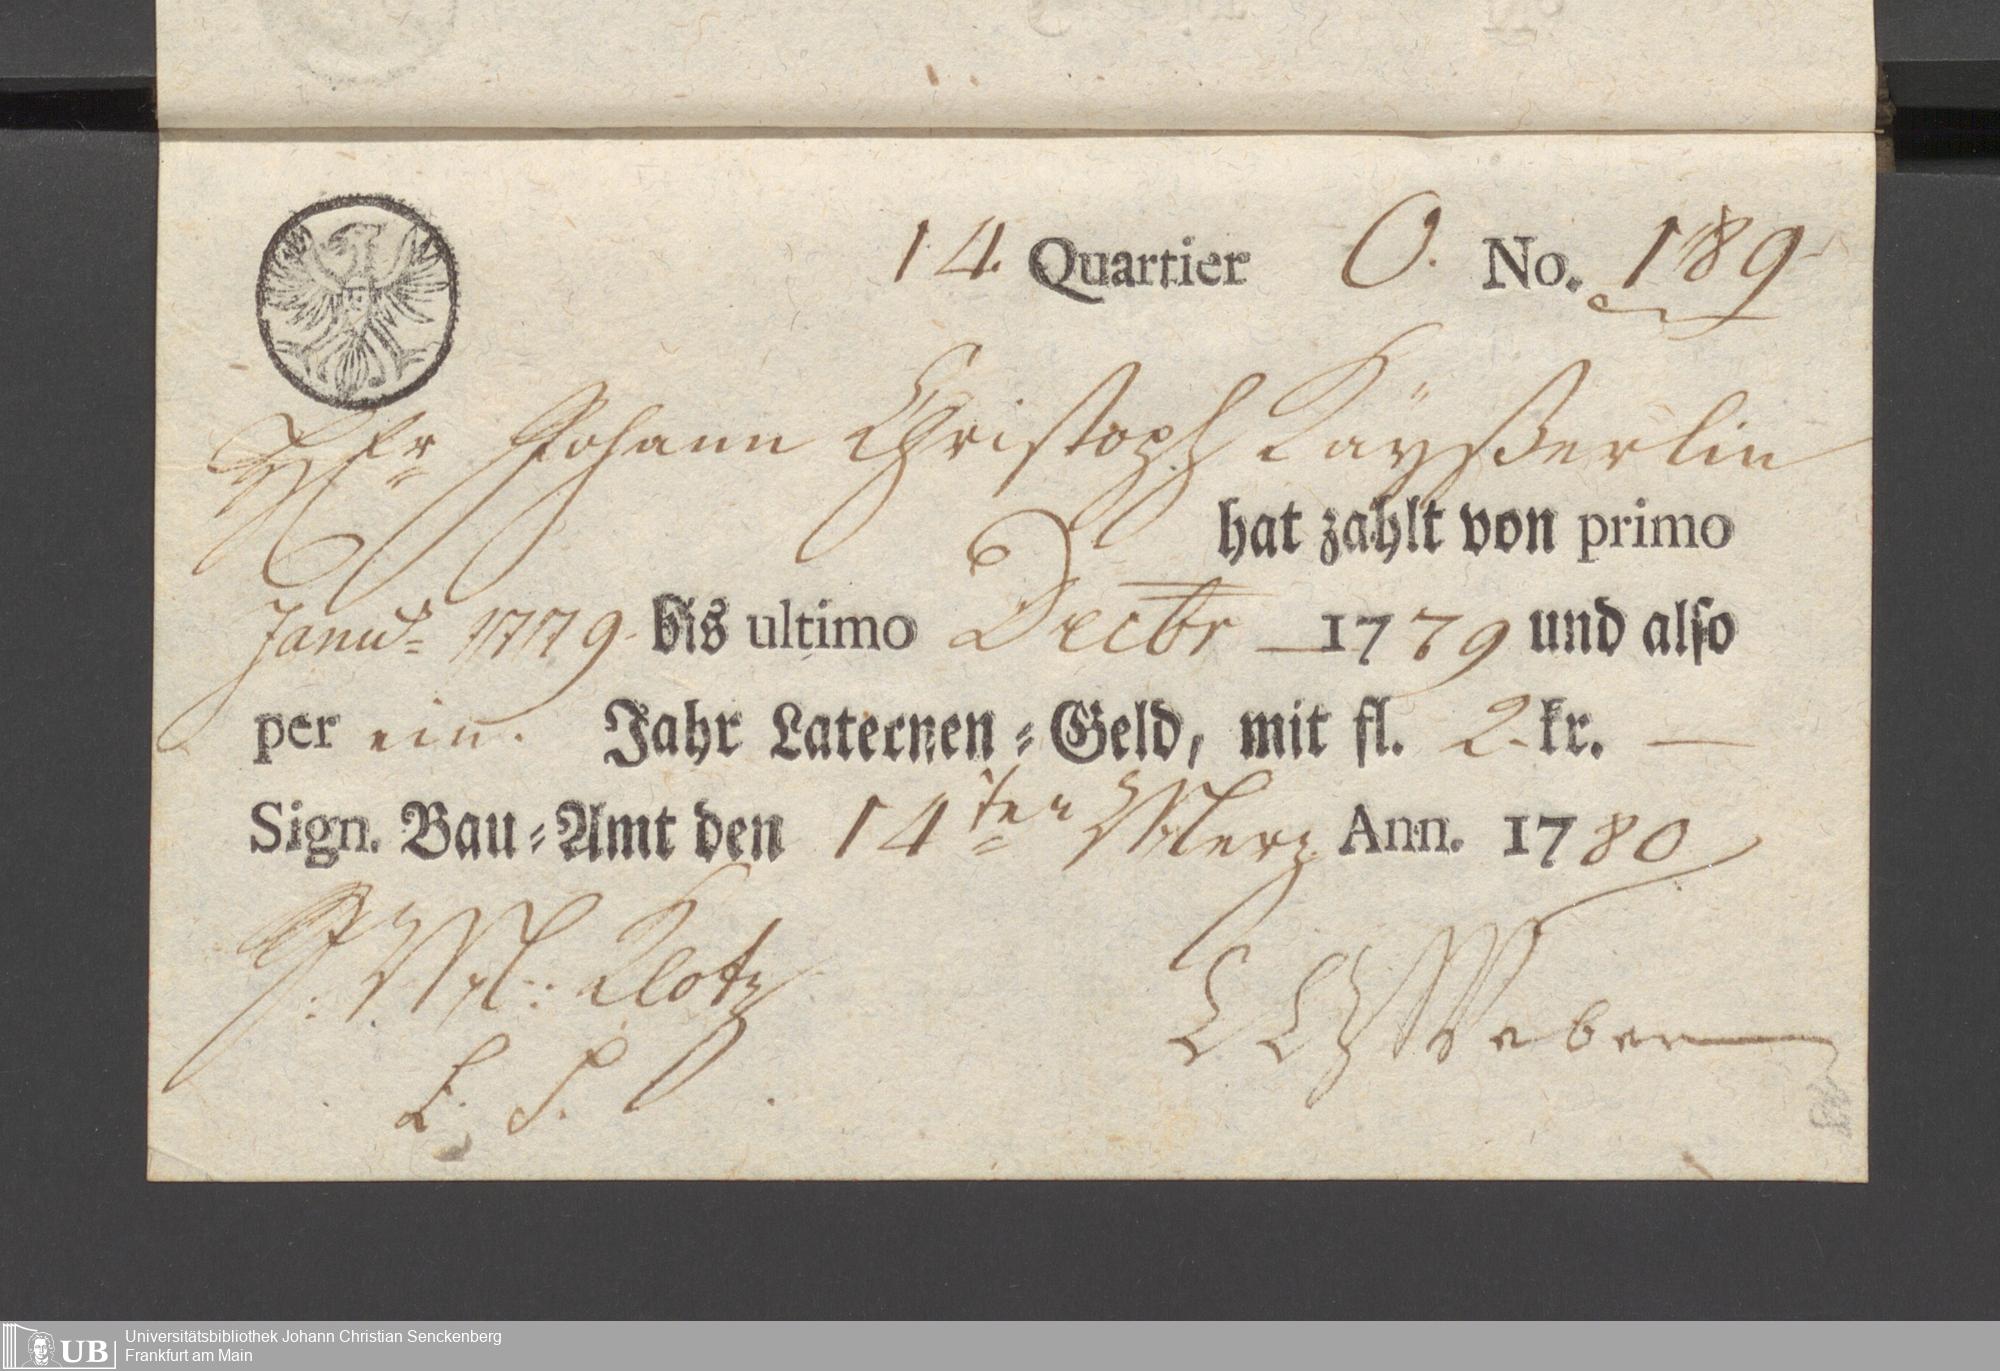 14. Quartier O. No. 189
Johann Christoph Käyßerlin
hat zahlt von primo
Janu. 1779. bis ultimo Decbr 1779 und also
per ein. Jahr Laternen-Geld, mit fl. 2. kr. —
Sign. Bau-Amt den 14ten Merz Ann. 1780
Klotz
Weber
L. S.
UB
Universitätsbibliothek Johann Christian Senckenberg
Frankfurt am Main